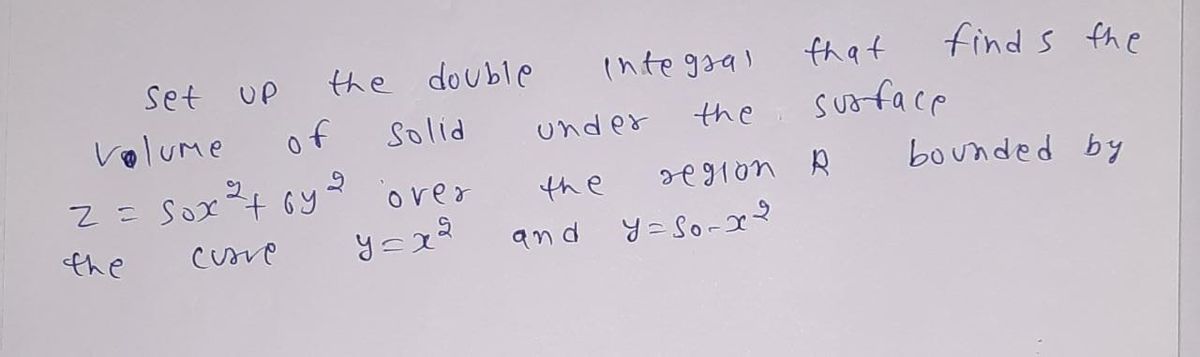 set up the double integral that finds the
volume of solid under the surface
z = 50x² + 6y² over the region R bounded by
the curve y = x² and y = 50 - x²